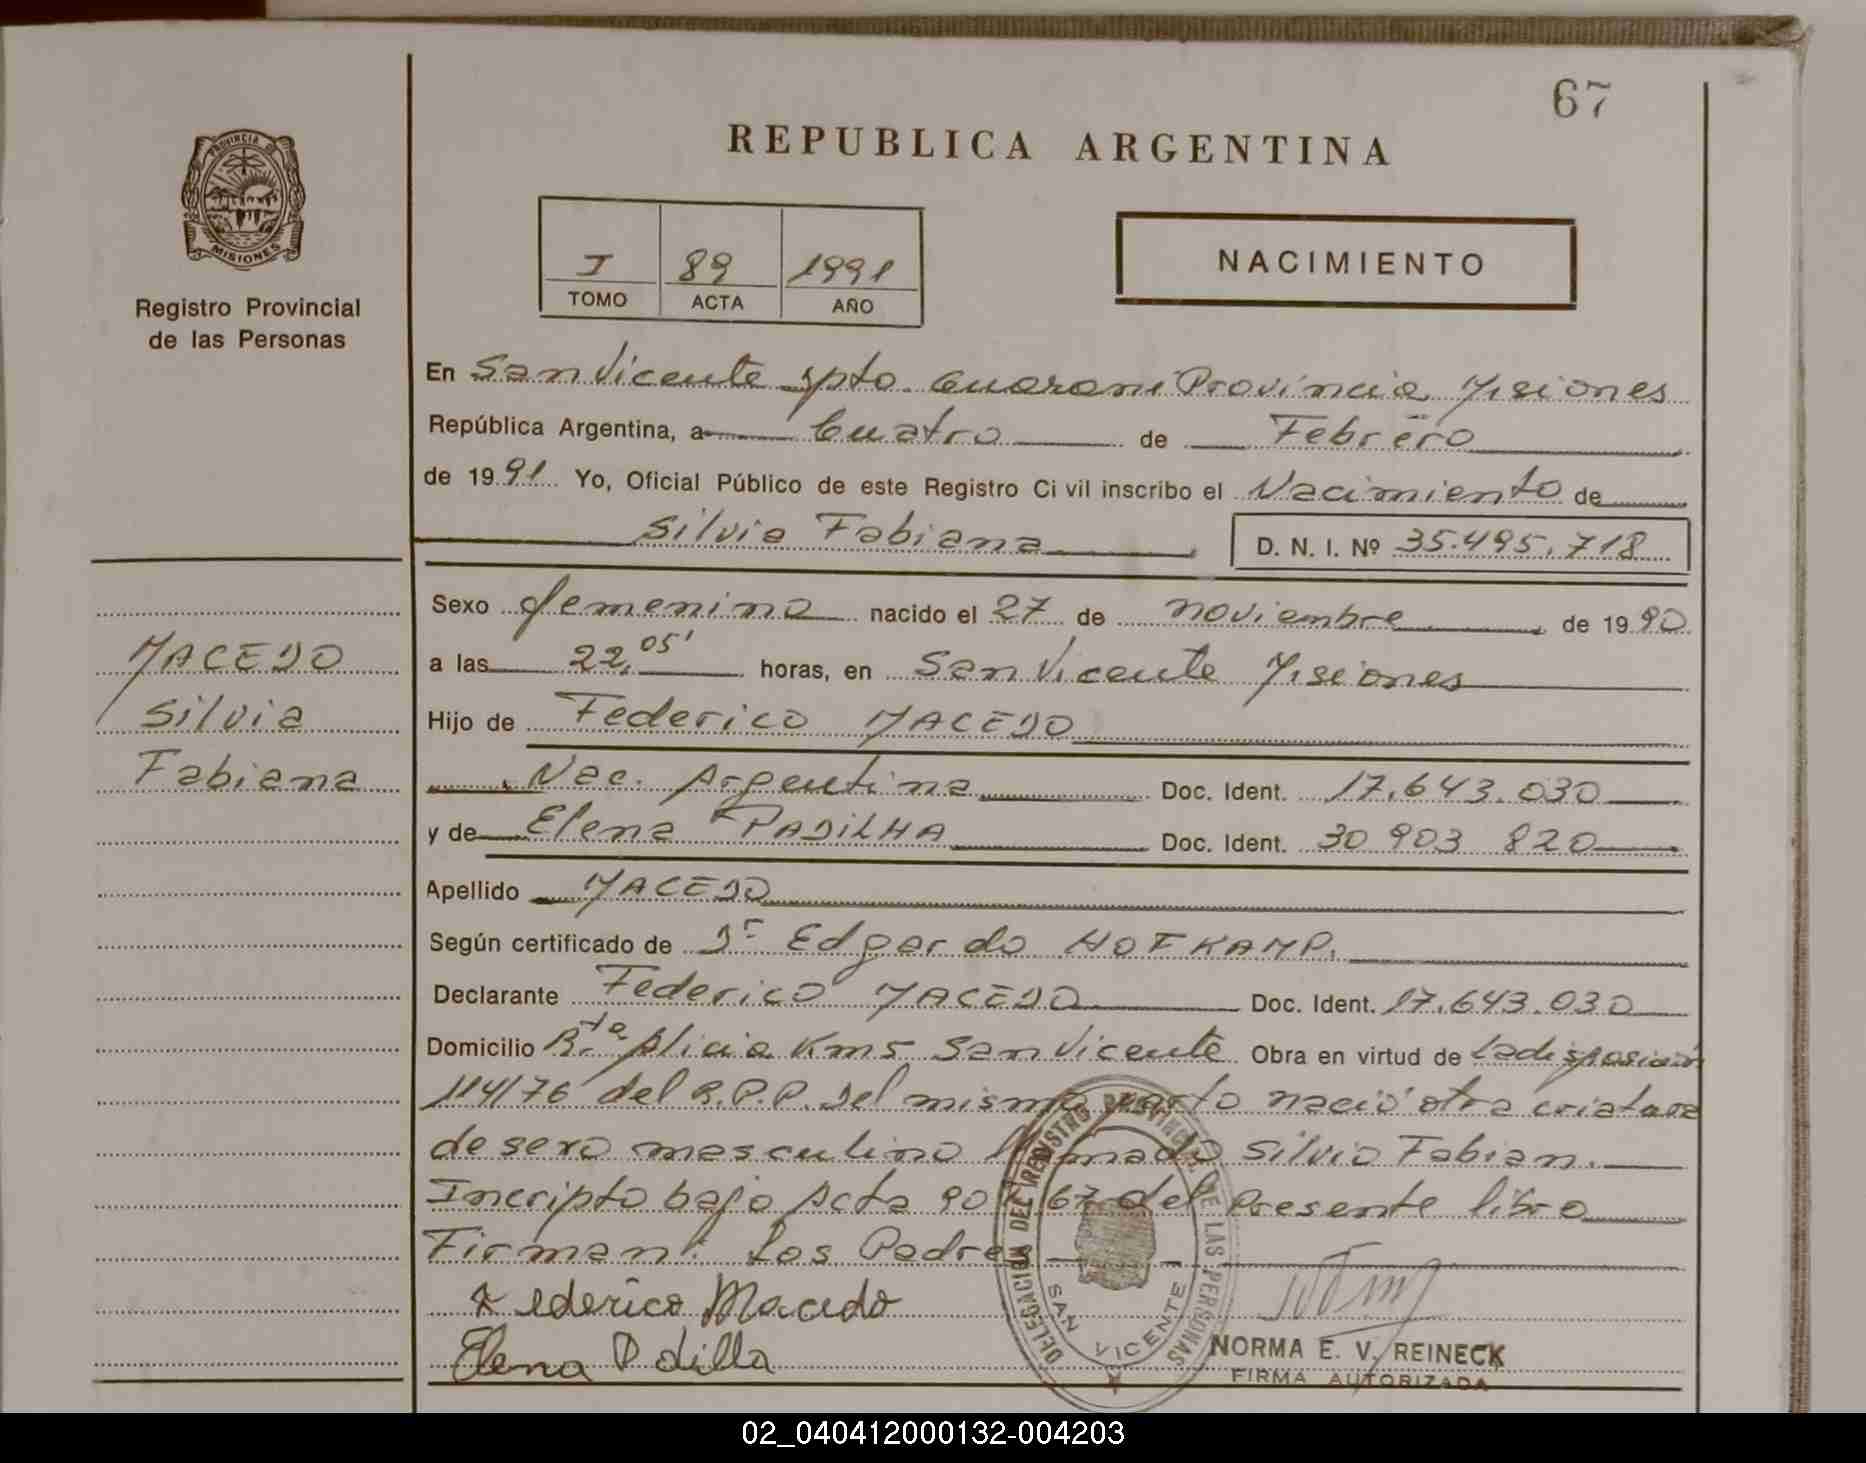 67
REPUBLICA ARGENTINA
PROVINCIA D
MISIONES
Registro Provincial
de las Personas
I 89 1991
TOMO ACTA AÑO
NACIMIENTO
En San Vicente Dpto. Guarani Provincia Misiones
República Argentina, a Cuatro de Febrero
de 1991 Yo, Oficial Público de este Registro Civil inscribo el Nacimiento de
Silvia Fabiana D. N. I. Nº 35.495.718
Sexo femenino nacido el 27 de noviembre de 1990
a las 22,05' horas, en San Vicente Misiones
Hijo de Federico MACEDO
Nac. Argentina Doc. Ident. 17.643.030
y de Elena PADILHA Doc. Ident. 30 903 820
Apellido MACEDO
Según certificado de Dr Edgardo HOFKAMP.
Declarante Federico MACEDO Doc. Ident. 17.643.030
Domicilio Rta Alicia Km5 San Vicente Obra en virtud de la disposición
114/76 del R.P.P. Del mismo parto nació otra criatura
de sexo masculino llamado Silvio Fabian.
Incripto bajo Acta 90 67 del Presente libro
Firman: Los Padres
Federico Macedo
Elena Pdilla
MACEDO
Silvia
Fabiana
DELEGACION DEL REGISTRO PROVINCIAL DE LAS PERSONAS
SAN VICENTE
NORMA E. V. REINECK
FIRMA AUTORIZADA
02_040412000132-004203